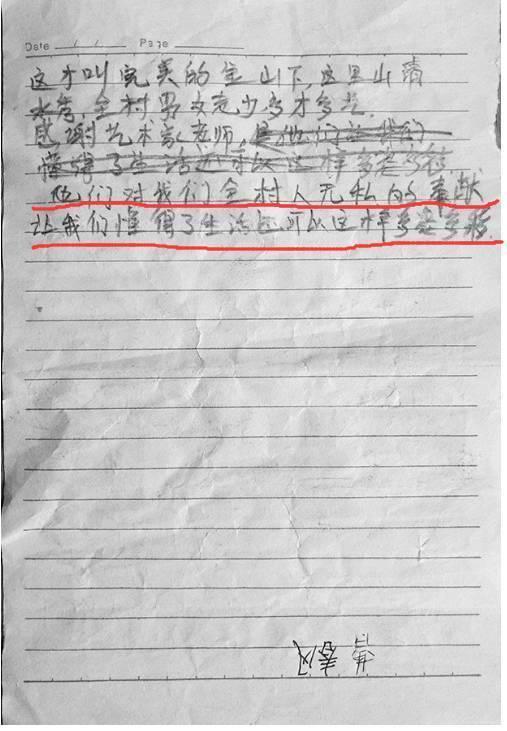 Date / / Page
这才叫完美的山下,这里山清
水秀,全村男女老少多才多艺.
感谢艺术家老师,是他们让我们
懂得了生活还可以这样多姿多彩
他们对我们全村人无私的奉献
让我们懂得了生活还可以这样多姿多彩.
春风